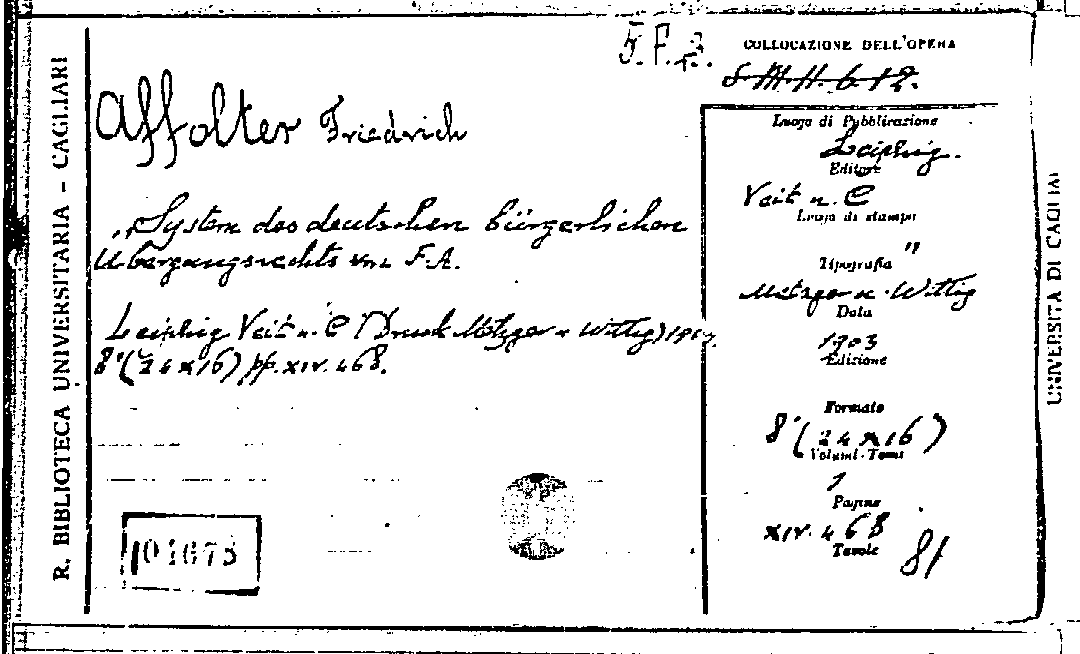 R. BIBLIOTECA UNIVERSITARIA - CAGLIARI
F.F.
COLLOCAZIONE DELL'OPERA
S.M.H.6.12.
Affolter Friedrich
„System des deutschen bürgerlichen
Übergangsrechts von F.A.
Leipzig Veit u. C (Druck Metzger u Wittig) 1903.
8°(24x16) pp. XIV. 468.
Luogo di Pubblicazione
Leipzig.
Editore
Veit u. C
Luogo di stampa
"
Tipografia
Metzger u. Wittig
Data
1903
Edizione
Formato
8°(24x16)
Volumi-Tomi
1
Pagine
XIV. 468
Tavole
81
UNIVERSITA DI CAGLIARI